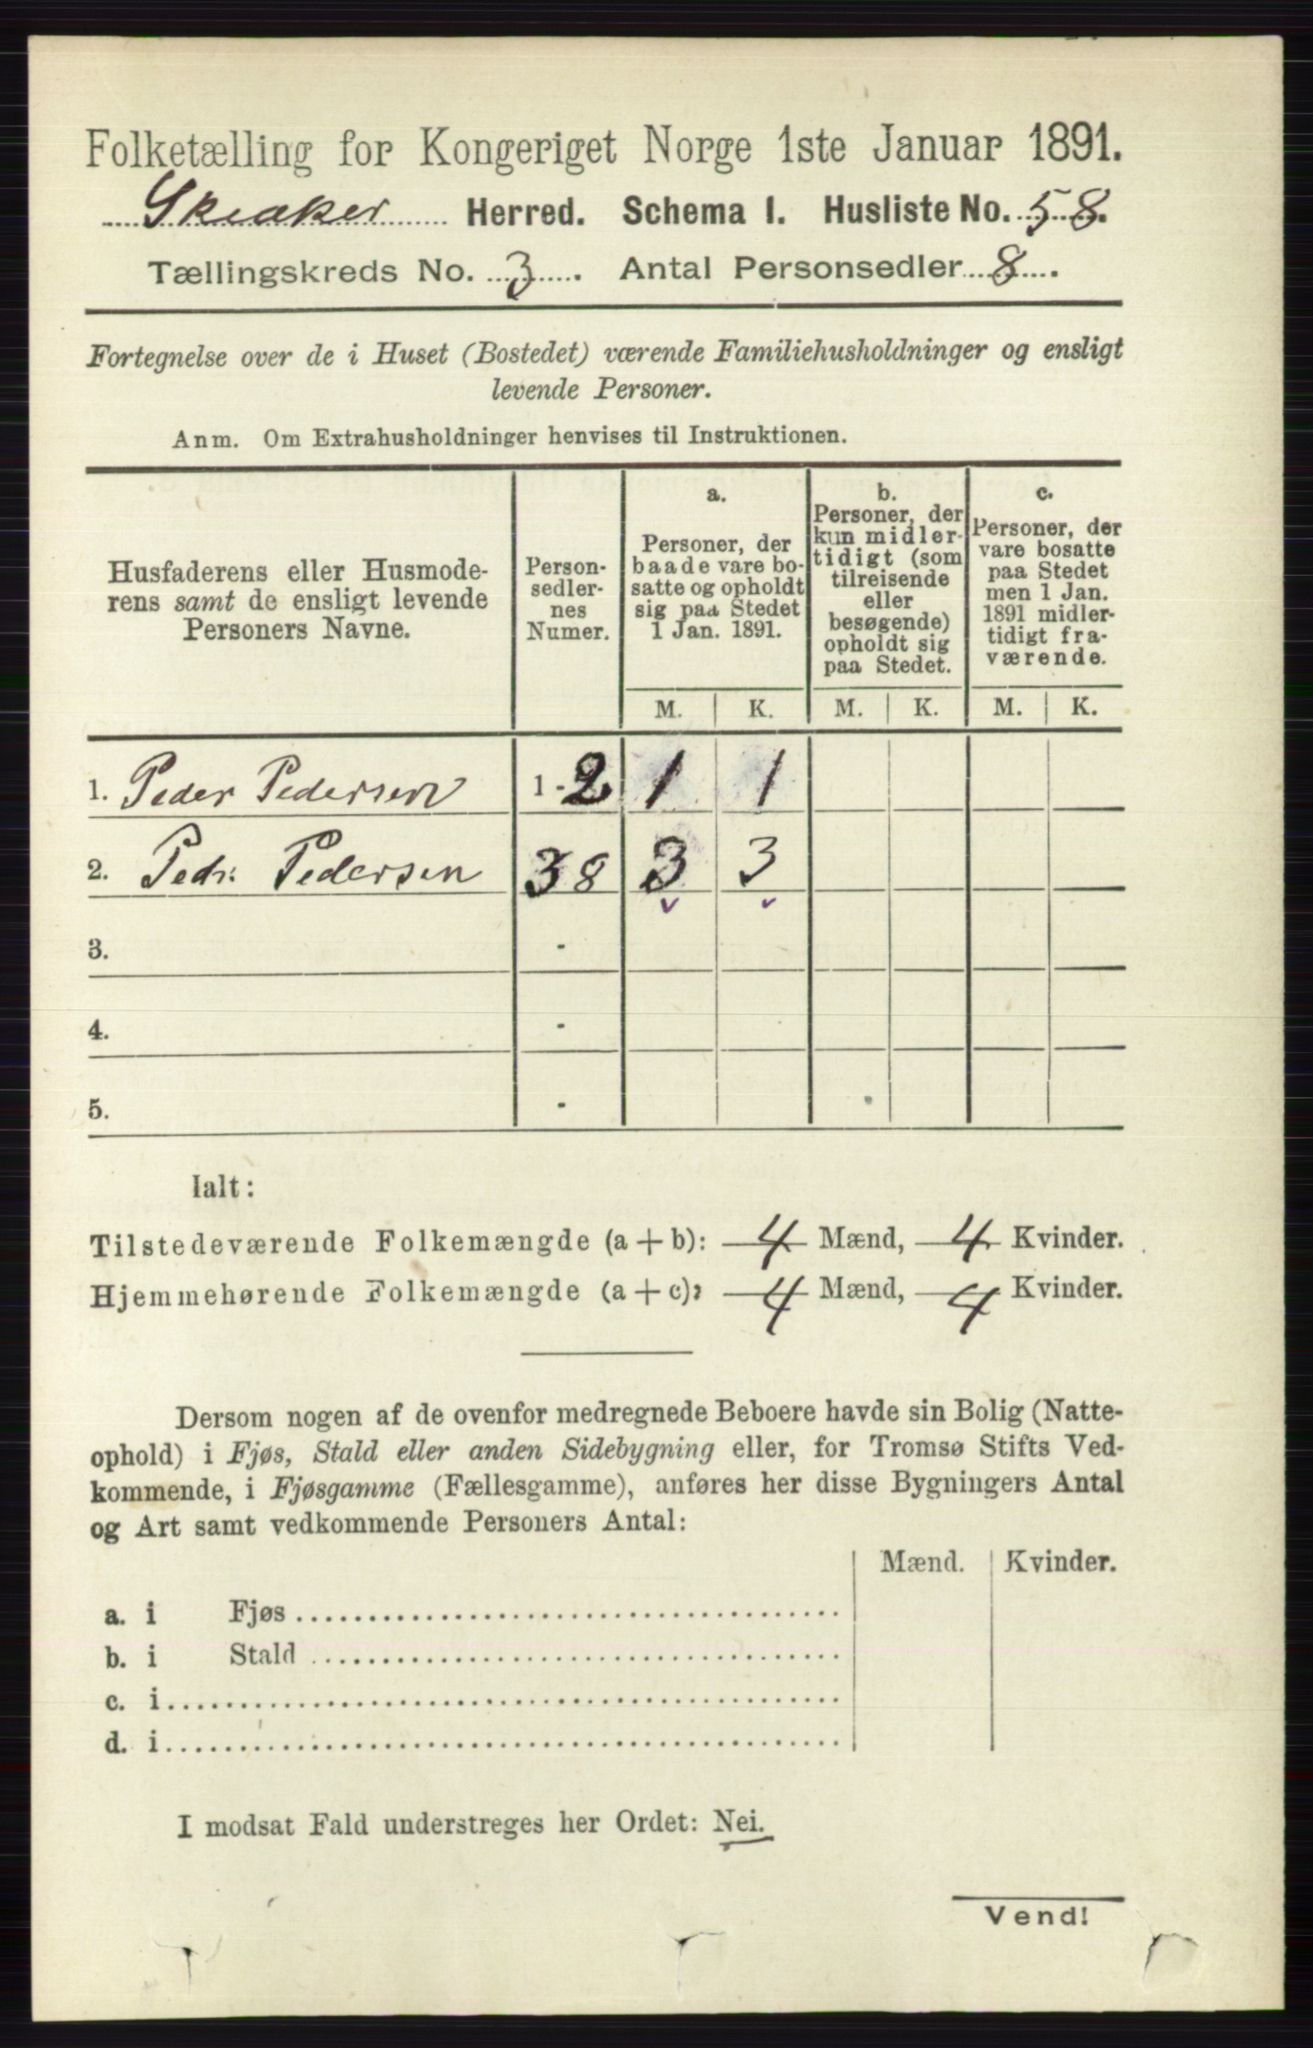 Folketælling for Kongeriget Norge 1ste Januar 1891.
Skiaker Herred. Schema I. Husliste No. 58.
Tællingskreds No. 3. Antal Personsedler 8.
Fortegnelse over de i Huset (Bostedet) værende Familiehusholdninger og ensligt
levende Personer.
Anm. Om Extrahusholdninger henvises til Instruktionen.
Husfaderens eller Husmode-
rens samt de ensligt levende
Personers Navne.
Person-
sedler-
nes
Numer.
a.
Personer, der
baade vare bo-
satte og opholdt
sig paa Stedet
1 Jan. 1891.
b.
Personer, der
kun midler-
tidigt (som
tilreisende
eller
besøgende)
opholdt sig
paa Stedet.
c.
Personer, der
vare bosatte
paa Stedet
men 1 Jan.
1891 midler-
tidigt fra-
værende.
M. K. M. K. M. K.
1. Peder Pedersen 1-2 1 1
2. Pedr: Pedersen 38 3 3
3. -
4. -
5. -
Ialt:
Tilstedeværende Folkemængde (a + b): 4 Mænd, 4 Kvinder.
Hjemmehørende Folkemængde (a + c): 4 Mænd, 4 Kvinder.
Dersom nogen af de ovenfor medregnede Beboere havde sin Bolig (Natte-
ophold) i Fjøs, Stald eller anden Sidebygning eller, for Tromsø Stifts Ved-
kommende, i Fjøsgamme (Fællesgamme), anføres her disse Bygningers Antal
og Art samt vedkommende Personers Antal:
Mænd. Kvinder.
a. i Fjøs
b. i Stald
c. i
d. i
I modsat Fald understreges her Ordet: Nei.
Vend!